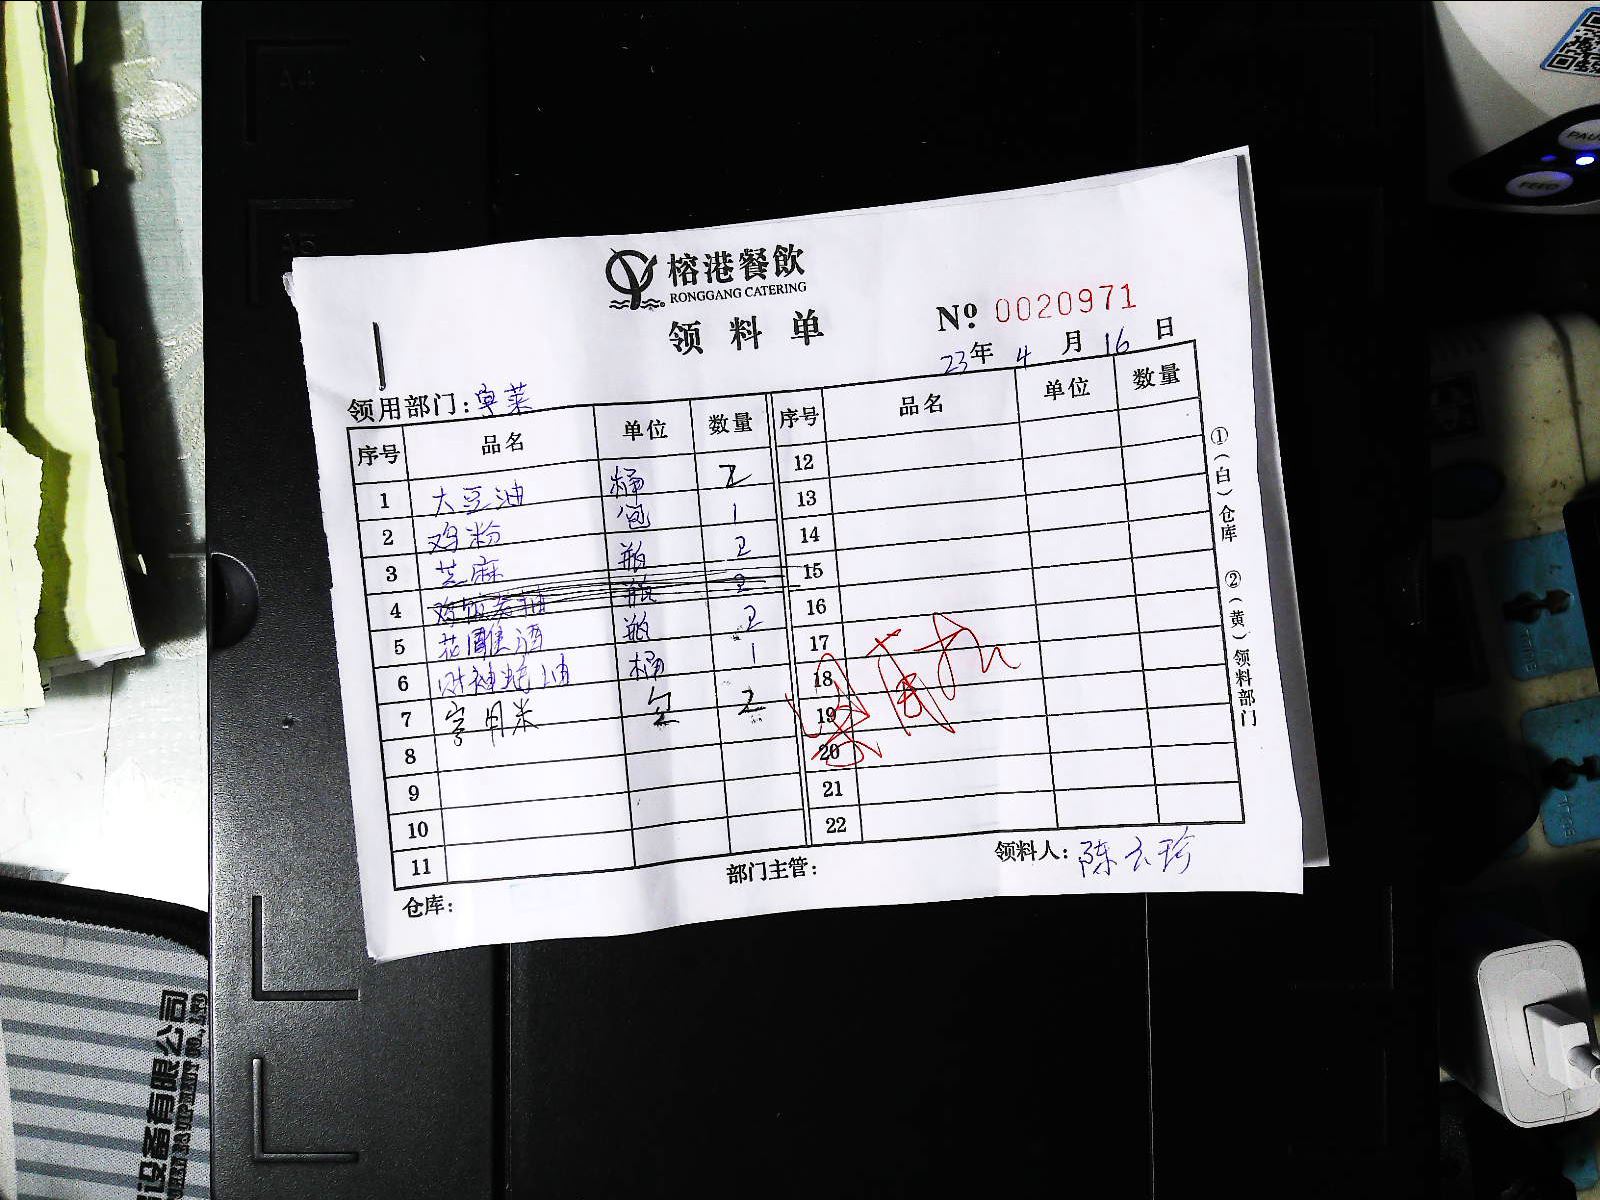 榕港餐飲
RONGGANG CATERING
领料单
№ 0020971
23年 4 月 16 日
领用部门:
序号 品名 单位 数量 序号 品名 单位 数量
1 大豆油 桶 2 12
2 鸡粉 包 1 13
3 芝麻 瓶 2 14
4 瓶 2 15
5 花雕酒 瓶 2 16
6 财神蚝油 桶 1 17
7 米 包 2 18
8 19
9 20
10 21
11 22
仓库: 部门主管: 领料人: 陈云珍
①(白)仓库 ②(黄)领料部门
A4
A5
PAU
FEED
设备有限公司
EQUIPMENT CO., LTD